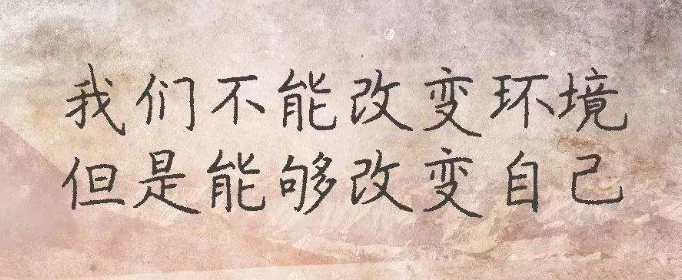 我们不能改变环境
但是能够改变自己